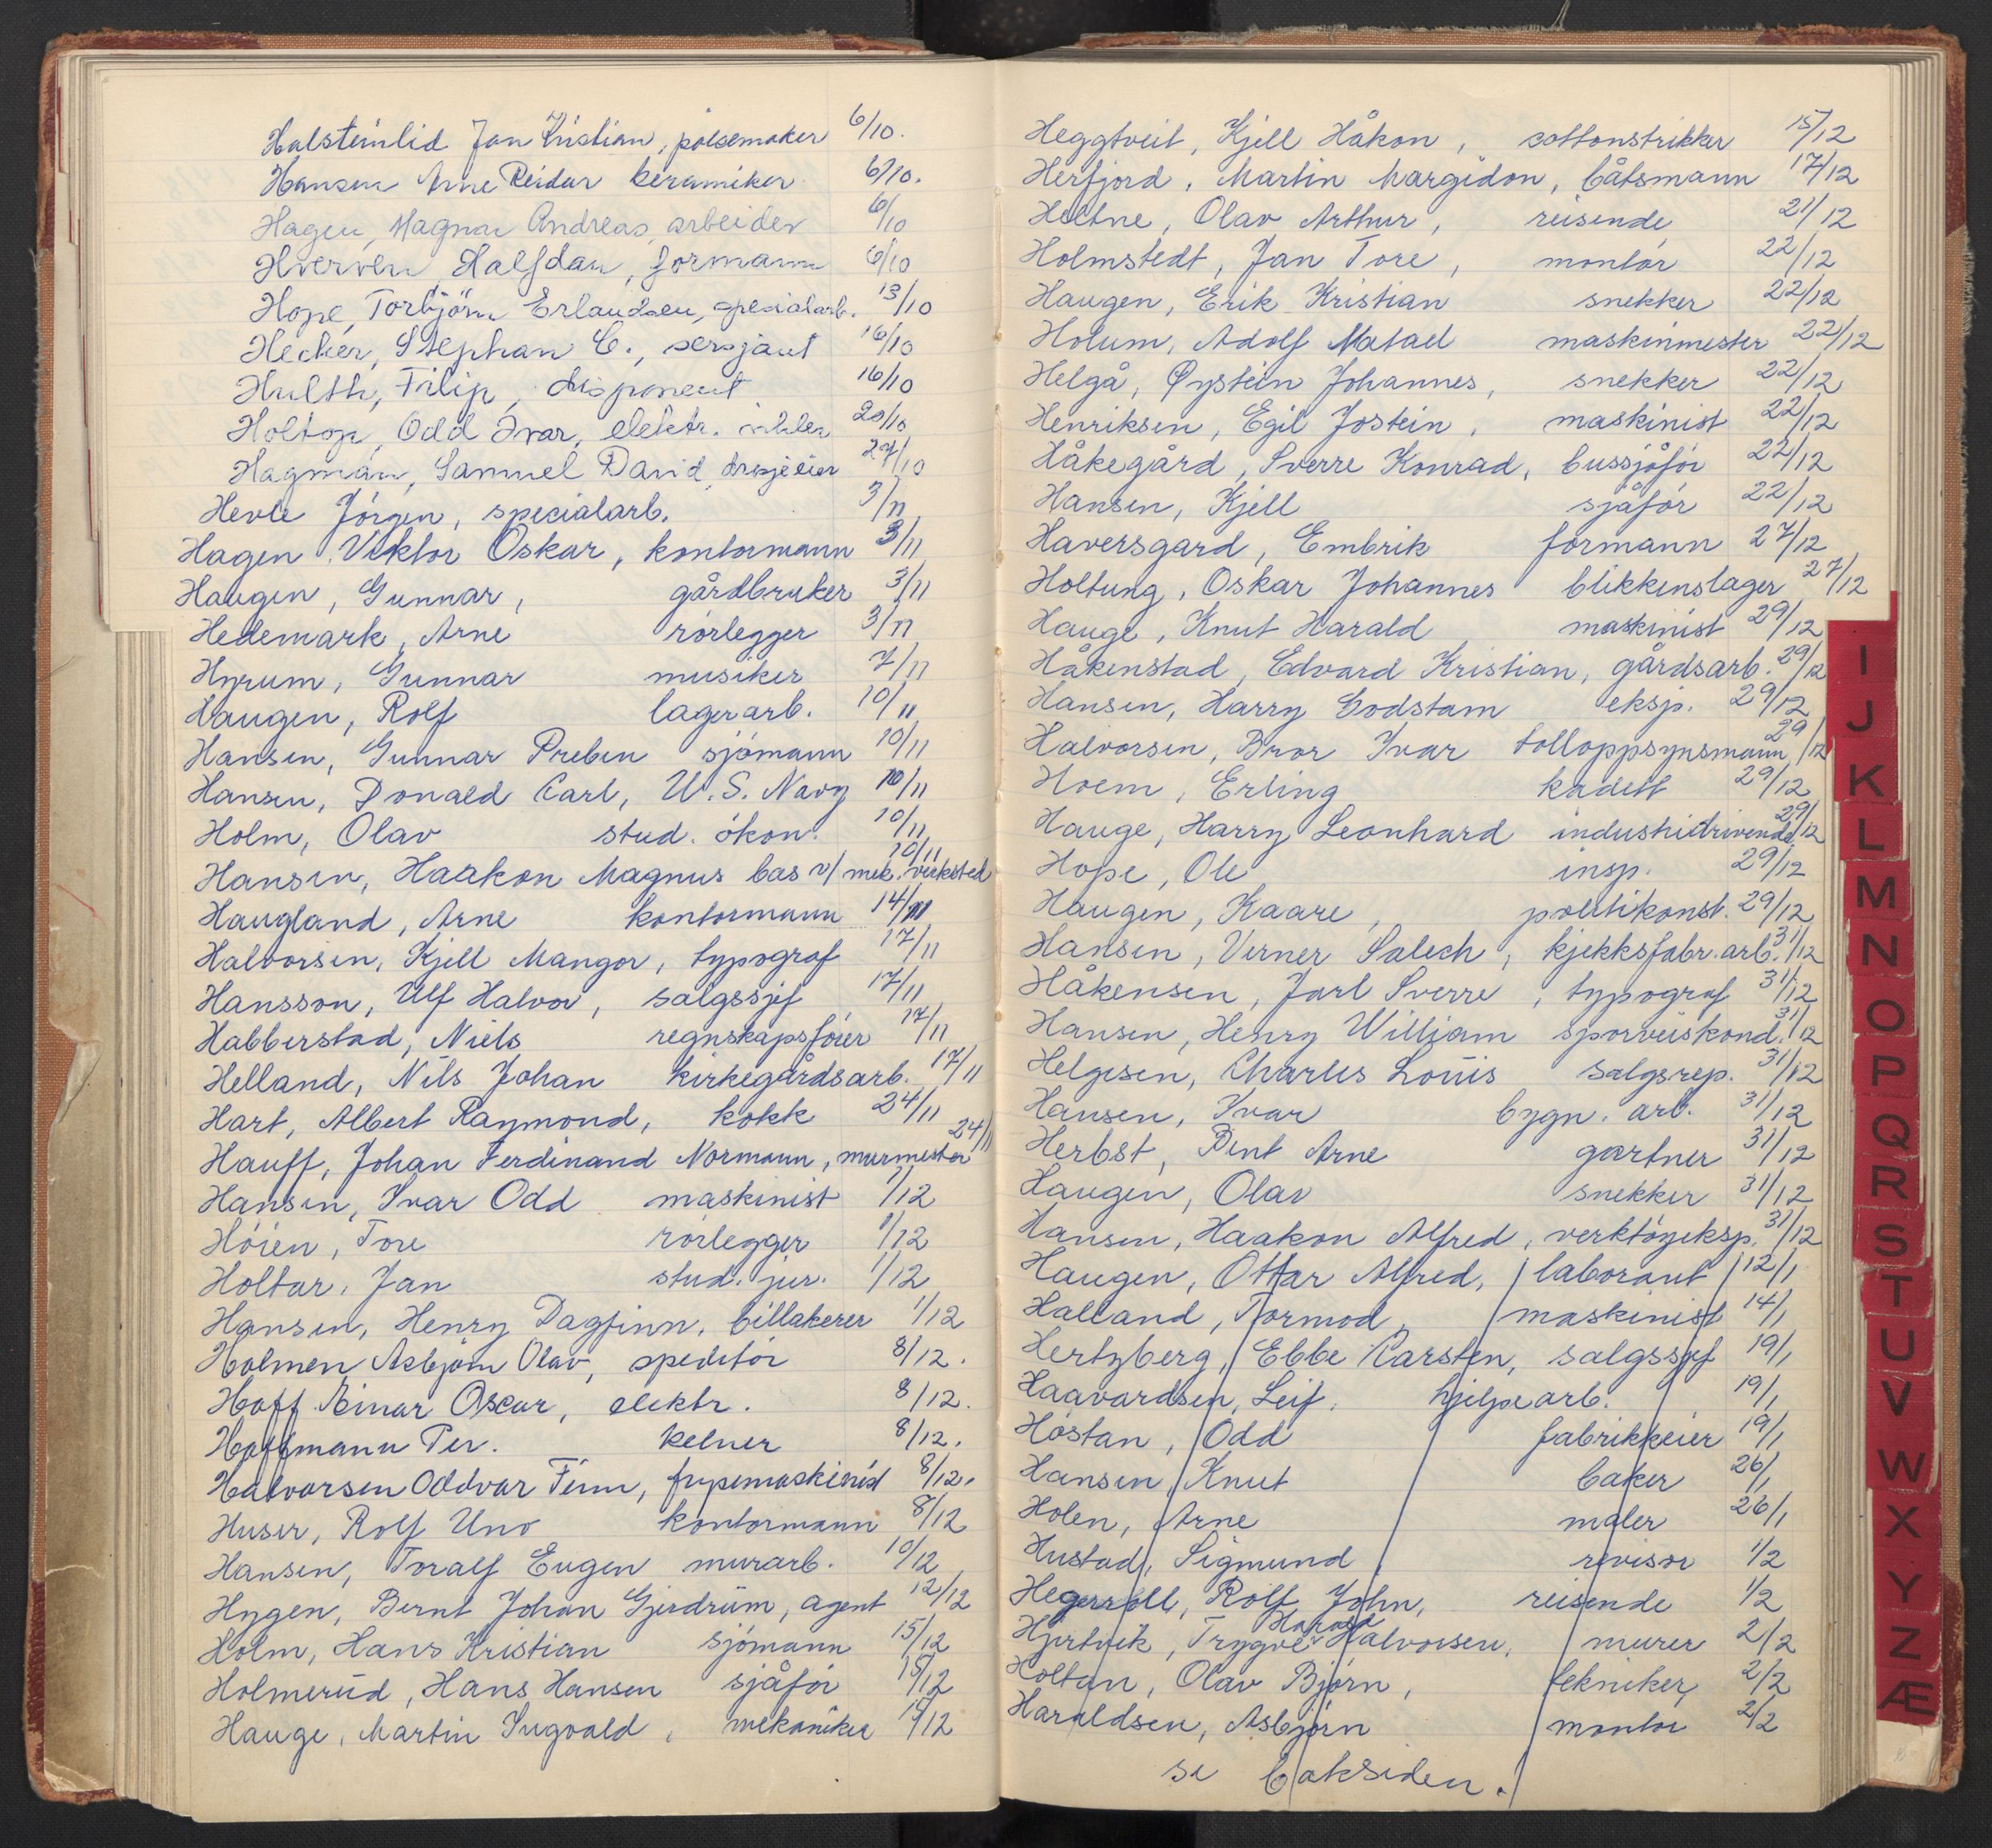 Halsteinlid Jan Kristian, pølsemaker 6/10.
Hansen Arne Reidar keramiker 6/10.
Hagen, Magnar Andreas, arbeider 6/10
Hverven, Halfdan, formann 6/10
Hope, Torbjörn Erlandsen, spesialarb. 13/10
Hecker, Stephan C., sersjant 16/10
Hulth, Filip, disponent 16/10
Holtop, Odd Ivar, elektr. 20/10
Hagman, Samuel David, drosjeeier 27/10
Hevle Jörgen, specialarb. 3/11
Hagen Viktor Oskar, kontormann 3/11
Haugen, Gunnar, gårdbruker 3/11
Hedemark, Arne rörlegger 3/11
Hyrum, Gunnar musiker 7/11
Haugen, Rolf lagerarb. 10/11
Hansen, Gunnar Preben sjömann 10/11
Hansen, Donald Carl, U.S. Navy 10/11
Holm, Olav stud. ökon. 10/11
Hansen, Haakon Magnus bas v/ mek. verksted 10/11
Haugland, Arne kontormann 14/11
Halvorsen, Kjell Mangor, typograf 17/11
Hansson, Ulf Halvor, salgssjef 17/11
Habberstad, Niels regnskapsförer 17/11
Helland, Nils Johan kirkegårdsarb. 17/11
Hart, Albert Raymond, kokk 24/11
Hauff, Johan Ferdinand Normann, murmester 24/11
Hansen, Ivar Odd maskinist 1/12
Höien, Tore rörlegger 1/12
Holtar, Jan stud. jur. 1/12
Hansen, Henry Dagfinn, billakerer 1/12
Holmen Asbjörn Olav, speditör 8/12.
Hoff Einar Oscar, elektr. 8/12.
Hoffmann Per. kelner 8/12.
Halvorsen Oddvar Finn, frysemaskinist 8/12.
Huser, Rolf Uno kontormann 8/12
Hansen, Toralf Eugen murarb. 10/12
Hygen, Bernt Johan Gjerdrum, agent 12/12
Holm, Hans Kristian sjömann 15/12
Holmerud, Hans Hansen sjåför 15/12
Hauge, Martin Ingvald, mekaniker 15/12
Heggtveit, Kjell Håkon, cottonstrikker 15/12
Herfjord, Martin Margido​n, båtsmann 17/12
Heltne, Olav Arthur, reisende 21/12
Holmstedt, Jan Tore, montör 22/12
Haugen, Erik Kristian snekker 22/12
Holum, Adolf Matael maskinmester 22/12
Helgå, Øystein Johannes, snekker 22/12
Henriksen, Egil Jostein, maskinist 22/12
Håkegård, Sverre Konrad, bussjåför 22/12
Hansen, Kjell sjåför 22/12
Haversgard, Embrik formann 27/12
Holtung, Oskar Johannes blikkenslager 27/12
Hauge, Knut Harald maskinist 29/12
Håkenstad, Edvard Kristian, gårdsarb. 29/12
Hansen, Harry Godstam eksp. 29/12
Halvorsen, Bror Ivar tolloppsynsmann 29/12
Hoem, Erling kadett 29/12
Hauge, Harry Leonhard industridrivende 29/12
Hope, Ole insp. 29/12
Haugen, Kaare, politikonst. 29/12
Hansen, Verner Salech, kjekksfabr.arb. 31/12
Håkensen, Jarl Sverre, typograf 31/12
Hansen, Henry William sporveiskond. 31/12
Helgesen, Charles Louis salgsrep. 31/12
Hansen, Ivar bygn. arb. 31/12
Herbst, Bent Arne gartner 31/12
Haugen, Olav snekker 31/12
Hansen, Haakon Alfred, verktöyeksp. 31/12
Haugen, Ottar Alfred, laborant 12/1
Halland, Tormod, maskinist 14/1
Hertzberg, Ebbe Carsten, salgssjef 19/1
Haavardsen, Leif, hjelpearb. 19/1
Höstan, Odd fabrikkeier 19/1
Hansen, Knut baker 26/1
Holen, Arne maler 26/1
Hustad, Sigmund revisor 1/2
Hegerroll, Rolf John, reisende 1/2
Hjertvik, Trygve Harald Halvorsen, murer 2/2
Holtan, Olav Bjørn, tekniker, 2/2
Haraldsen, Asbjørn montör 2/2
se baksiden.
I
J
K
L
M
N
O
P
Q
R
S
T
U
V
W
X
Y
Z
Æ